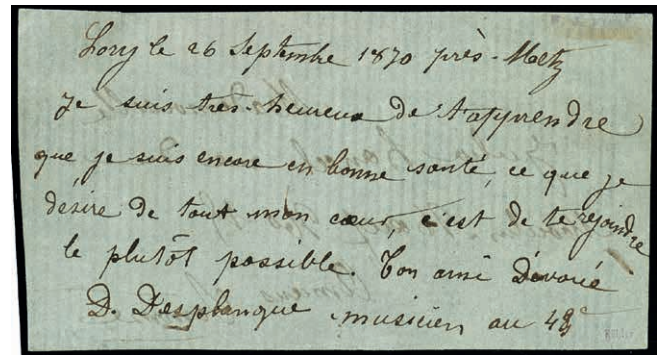 Lory le 26 Septembre 1870 près-Metz
Je suis très-heureux de t'apprendre
que je suis encore en bonne santé, ce que je
désire de tout mon cœur, c'est de te rejoindre
le plutôt possible. Ton ami dévoué
D. Desplanque musicien au 43e